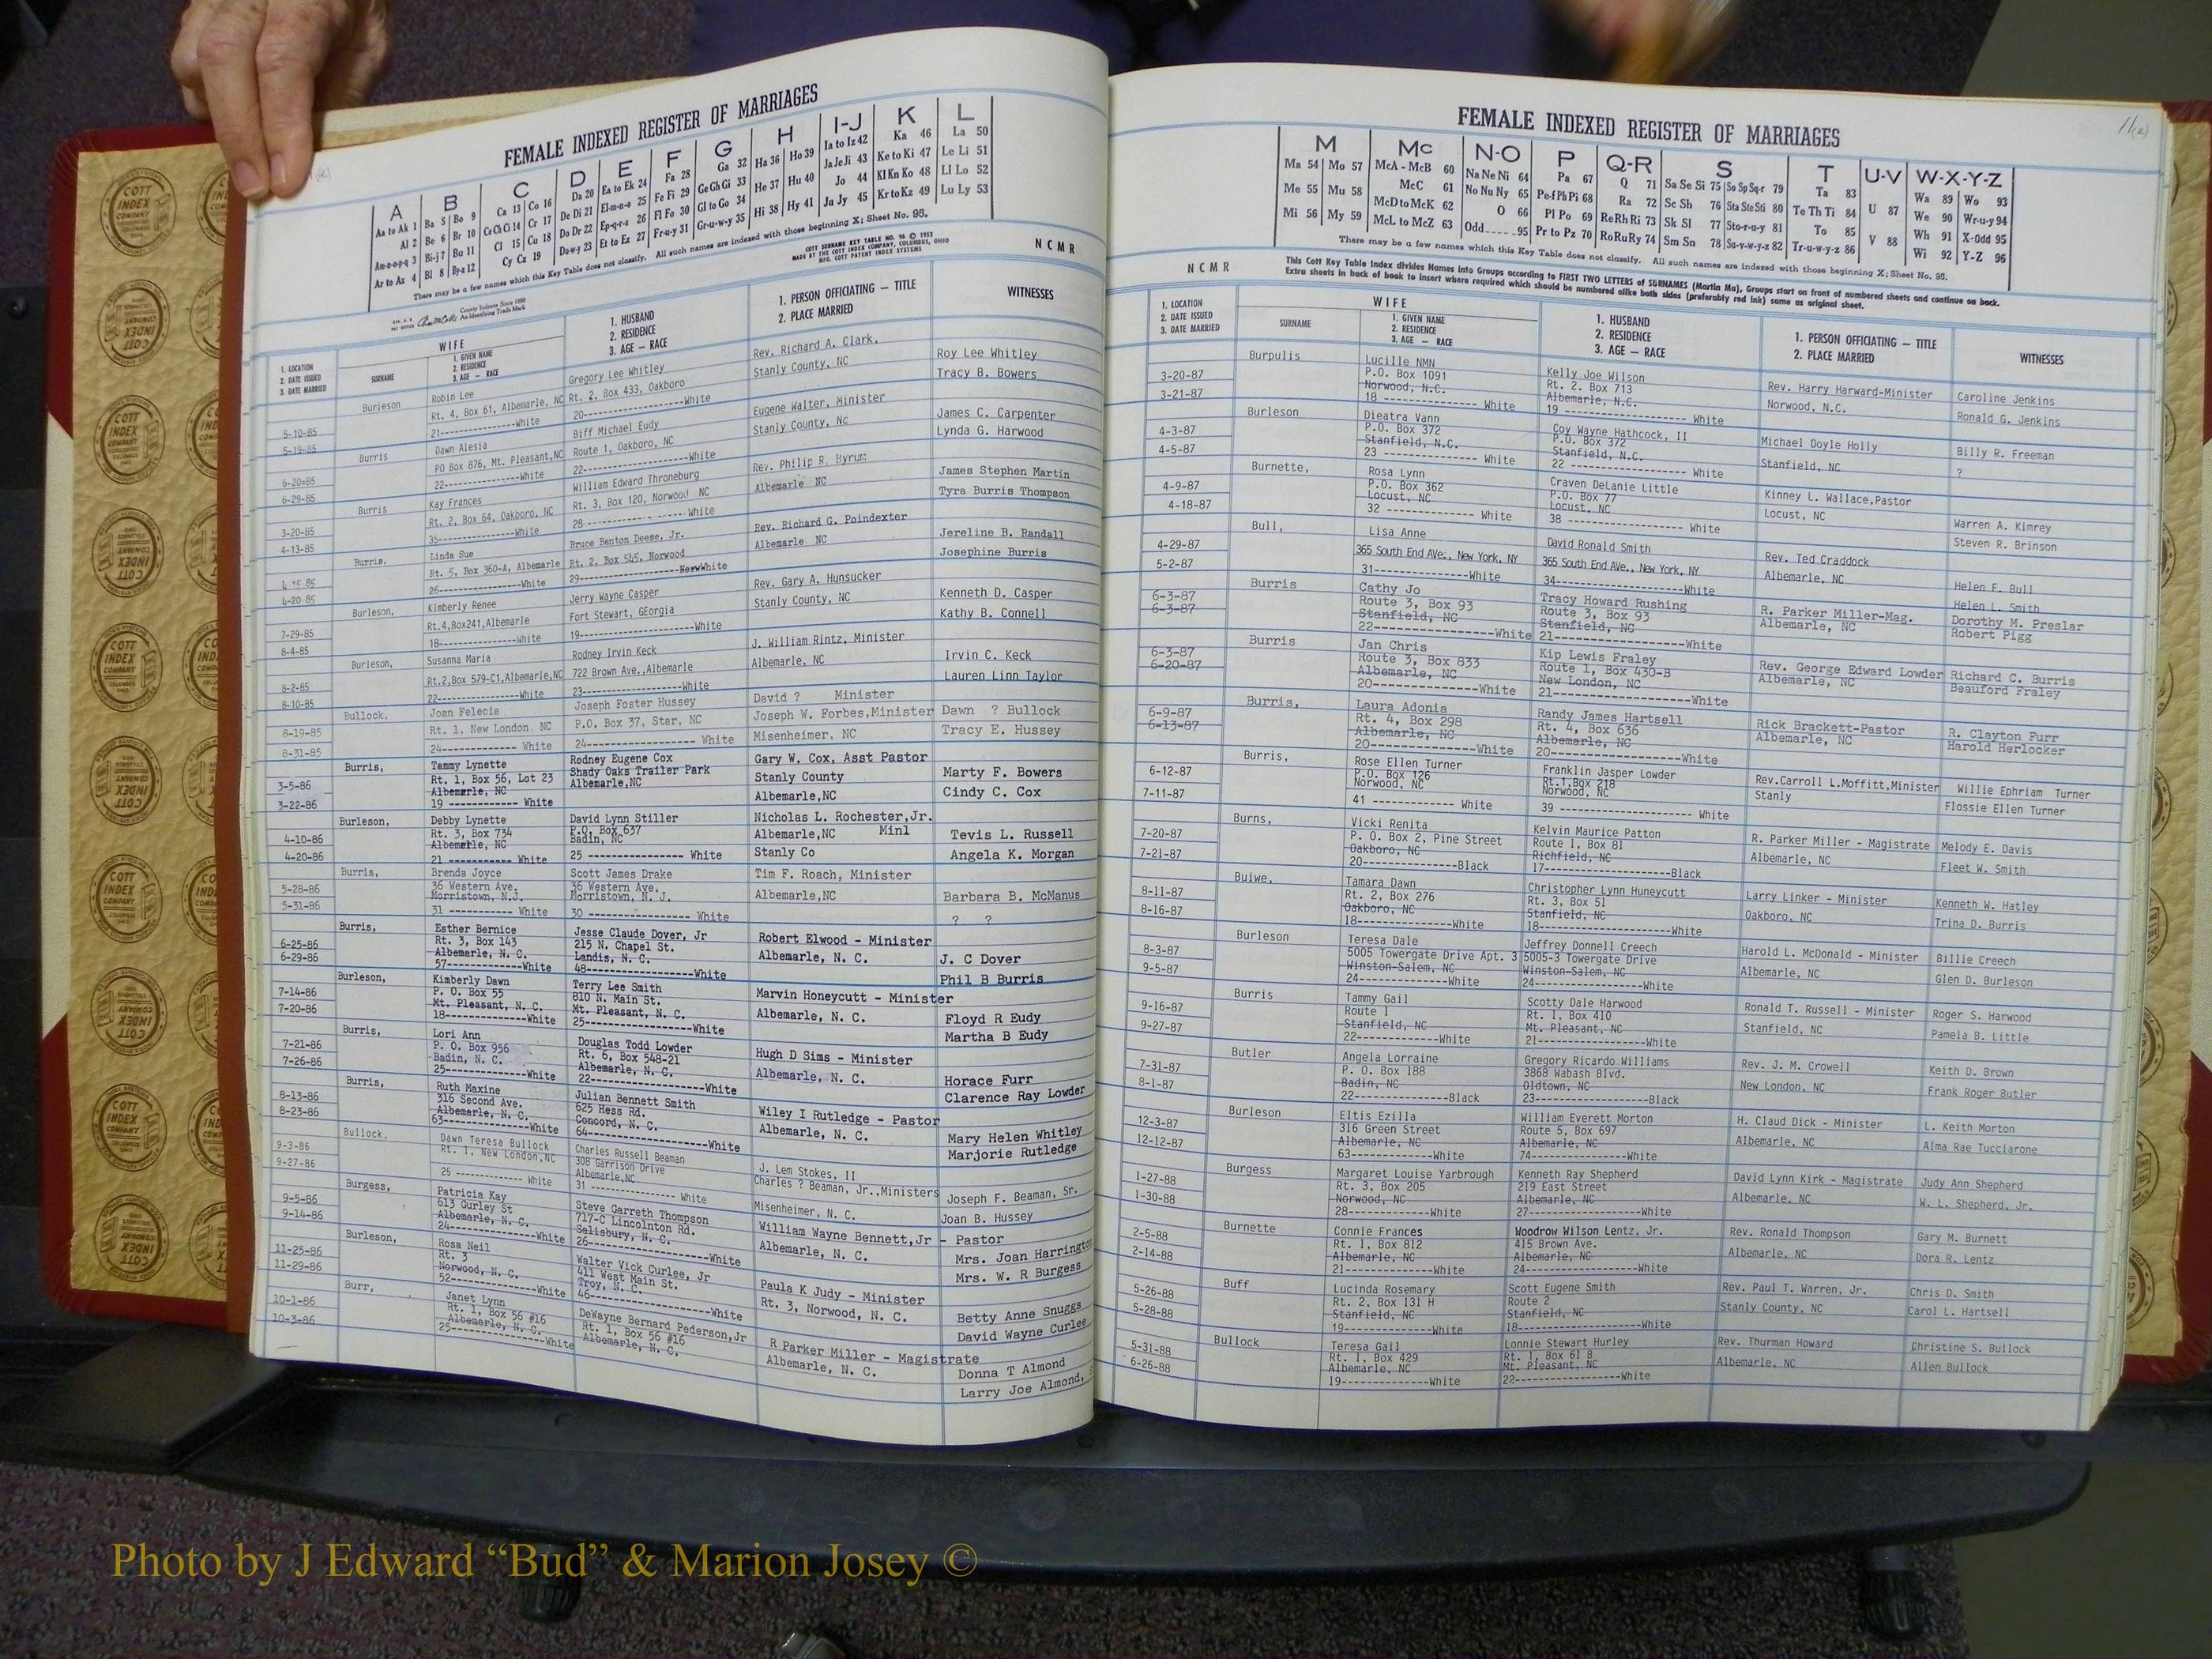 FEMALE INDEXED REGISTER OF MARRIAGES
A B C D E F G H I-J K L
Aa to Ak 1 Ba 5 Bo 9 Ca 13 Co 16 Da 20 Ea to Ek 24 Fa 28 Ga 32 Ha 36 Ho 39 Ia to Iz 42 Ka 46 La 50
Al 2 Be 6 Br 10 Ce Ch Ci 14 Cr 17 De Di 21 El-m-n-o 25 Fe Fi 29 Ge Gh Gi 33 He 37 Hu 40 Ja Je Ji 43 Ke to Ki 47 Le Li 51
Am-n-o-p-q 3 Bi-j 7 Bu 11 Cl 15 Cu 18 Do Dr 22 Ep-q-r-s 26 Fl Fo 30 Gl to Go 34 Hi 38 Hy 41 Jo 44 Kl Kn Ko 48 Ll Lo 52
Ar to Az 4 Bl 8 By-z 12 Cy Cz 19 Du-w-y 23 Et to Ez 27 Fr-u-y 31 Gr-u-w-y 35 Ju Jy 45 Kr to Kz 49 Lu Ly 53
There may be a few names which this Key Table does not classify. All such names are indexed with those beginning X; Sheet No. 95.
COTT SURNAME KEY TABLE NO. 96 © 1952
MADE BY THE COTT INDEX COMPANY, COLUMBUS, OHIO
MFG. COTT PATENT INDEX SYSTEMS
County Indexes Since 1888
An Identifying Trade Mark
N C M R
1. LOCATION
2. DATE ISSUED
3. DATE MARRIED
WIFE
SURNAME
1. GIVEN NAME
2. RESIDENCE
3. AGE — RACE
1. HUSBAND
2. RESIDENCE
3. AGE — RACE
1. PERSON OFFICIATING — TITLE
2. PLACE MARRIED
WITNESSES
Burleson Robin Lee Gregory Lee Whitley Rev. Richard A. Clark, Roy Lee Whitley
5-10-85 Rt. 4, Box 61, Albemarle, NC Rt. 2, Box 433, Oakboro Stanly County, NC Tracy B. Bowers
5-19-85 21---------------White 20--------------------White
Burris Dawn Alesia Biff Michael Eudy Eugene Walter, Minister James C. Carpenter
6-20-85 PO Box 876, Mt. Pleasant,NC Route 1, Oakboro, NC Stanly County, NC Lynda G. Harwood
6-29-85 22---------------White 22--------------------White
Burris Kay Frances William Edward Throneburg Rev. Philip R. Byrum James Stephen Martin
3-20-85 Rt. 2, Box 64, Oakboro, NC Rt. 3, Box 120, Norwood NC Albemarle NC Tyra Burris Thompson
4-13-85 35---------------White 28--------------------White
Burris, Linda Sue Bruce Benton Deese, Jr. Rev. Richard G. Poindexter Jereline B. Randall
4-15-85 Rt. 5, Box 360-A, Albemarle Rt. 2, Box 545, Norwood Albemarle NC Josephine Burris
4-20-85 26---------------White 29--------------------White
Burleson, Kimberly Renee Jerry Wayne Casper Rev. Gary A. Hunsucker Kenneth D. Casper
7-29-85 Rt.4,Box241,Albemarle Fort Stewart, GEorgia Stanly County, NC Kathy B. Connell
8-4-85 18---------------White 19--------------------White
Burleson, Susanna Maria Rodney Irvin Keck J. William Rintz, Minister Irvin C. Keck
8-2-85 Rt.2,Box 579-C1,Albemarle,NC 722 Brown Ave.,Albemarle Albemarle, NC Lauren Linn Taylor
8-10-85 22---------------White 23--------------------White
Bullock, Joan Felecia Joseph Foster Hussey David ? Minister Dawn ? Bullock
8-19-85 Rt. 1, New London, NC P.O. Box 37, Star, NC Joseph W. Forbes,Minister Tracy E. Hussey
8-31-85 24--------------- White 24------------------ White Misenheimer, NC
Burris, Tammy Lynette Rodney Eugene Cox Gary W. Cox, Asst Pastor Marty F. Bowers
3-5-86 Rt. 1, Box 56, Lot 23 Shady Oaks Trailer Park Stanly County Cindy C. Cox
Albemarle, NC Albemarle,NC Albemarle,NC
3-22-86 19 ------------ White
Burleson, Debby Lynette David Lynn Stiller Nicholas L. Rochester,Jr. Minl Tevis L. Russell
4-10-86 Rt. 3, Box 734 P.O. Box 637 Albemarle,NC Angela K. Morgan
Albemarle, NC Badin, NC Stanly Co
4-20-86 21 ------------ White 25 ---------------- White
Burris, Brenda Joyce Scott James Drake Tim F. Roach, Minister Barbara B. McManus
5-28-86 36 Western Ave. 36 Western Ave. Albemarle,NC ? ?
Morristown, N.J. Morristown, N. J.
5-31-86 31 ----------- White 30 ---------------- White
Burris, Esther Bernice Jesse Claude Dover, Jr Robert Elwood - Minister J. C Dover
6-25-86 Rt. 3, Box 143 215 N. Chapel St. Albemarle, N. C. Phil B Burris
6-29-86 Albemarle, N. C. Landis, N. C.
57--------------White 48--------------------White
Burleson, Kimberly Dawn Terry Lee Smith Marvin Honeycutt - Minister Floyd R Eudy
7-14-86 P. O. Box 55 810 N. Main St. Albemarle, N. C. Martha B Eudy
7-20-86 Mt. Pleasant, N. C. Mt. Pleasant, N. C.
18--------------White 25--------------------White
Burris, Lori Ann Douglas Todd Lowder Hugh D Sims - Minister Horace Furr
7-21-86 P. O. Box 956 Rt. 6, Box 548-21 Albemarle, N. C. Clarence Ray Lowder
7-26-86 Badin, N. C. Albemarle, N. C.
25--------------White 22--------------------White
Burris, Ruth Maxine Julian Bennett Smith Wiley I Rutledge - Pastor Mary Helen Whitley
8-13-86 316 Second Ave. 625 Hess Rd. Albemarle, N. C. Marjorie Rutledge
8-23-86 Albemarle, N. C. Concord, N. C.
63--------------White 64--------------------White
Bullock, Dawn Teresa Bullock Charles Russell Beaman J. Lem Stokes, II Joseph F. Beaman, Sr.
9-3-86 Rt. 1, New London,NC 308 Garrison Drive Charles ? Beaman, Jr.,Ministers Joan B. Hussey
9-27-86 25 ------------- White Albemarle,NC Misenheimer, N. C.
31 --------------- White
Burgess, Patricia Kay Steve Garreth Thompson William Wayne Bennett,Jr - Pastor Mrs. Joan Harrington
9-5-86 613 Gurley St 717-C Lincolnton Rd. Albemarle, N. C. Mrs. W. R Burgess
9-14-86 Albemarle, N. C. Salisbury, N. C.
24--------------White 26--------------------White
Burleson, Rosa Neil Walter Vick Curlee, Jr Paula K Judy - Minister Betty Anne Snuggs
11-25-86 Rt. 3 411 West Main St. Rt. 3, Norwood, N. C. David Wayne Curlee
11-29-86 Norwood, N. C. Troy, N. C.
52--------------White 46--------------------White
Burr, Janet Lynn DeWayne Bernard Pederson,Jr R Parker Miller - Magistrate Donna T Almond
10-1-86 Rt. 1, Box 56 #16 Rt. 1, Box 56 #16 Albemarle, N. C. Larry Joe Almond,
10-3-86 Albemarle, N. C. Albemarle, N. C.
25--------------White
FEMALE INDEXED REGISTER OF MARRIAGES
11(e)
M Mc N-O P Q-R S T U-V W-X-Y-Z
Ma 54 Mo 57 McA - McB 60 Na Ne Ni 64 Pa 67 Q 71 Sa Se Si 75 So Sp Sq-r 79 Ta 83 U 87 Wa 89 Wo 93
Me 55 Mu 58 McC 61 No Nu Ny 65 Pe-f Ph Pi 68 Ra 72 Sc Sh 76 Sta Ste Sti 80 Te Th Ti 84 V 88 We 90 Wr-u-y 94
Mi 56 My 59 McD to McK 62 O 66 Pl Po 69 Re Rh Ri 73 Sk Sl 77 Sto-r-u-y 81 To 85 Wh 91 X-Odd 95
McL to McZ 63 Odd 95 Pr to Pz 70 Ro Ru Ry 74 Sm Sn 78 Su-v-w-y-z 82 Tr-u-w-y-z 86 Wi 92 Y-Z 96
There may be a few names which this Key Table does not classify. All such names are indexed with those beginning X; Sheet No. 95.
N C M R
This Cott Key Table Index divides Names into Groups according to FIRST TWO LETTERS of SURNAMES (Martin Ma), Groups start on front of numbered sheets and continue on back.
Extra sheets in back of book to insert where required which should be numbered alike both sides (preferably red ink) same as original sheet.
1. LOCATION
2. DATE ISSUED
3. DATE MARRIED
WIFE
SURNAME
1. GIVEN NAME
2. RESIDENCE
3. AGE — RACE
1. HUSBAND
2. RESIDENCE
3. AGE — RACE
1. PERSON OFFICIATING — TITLE
2. PLACE MARRIED
WITNESSES
Burpulis Lucille NMN Kelly Joe Wilson Rev. Harry Harward-Minister Caroline Jenkins
3-20-87 P.O. Box 1091 Rt. 2. Box 713 Norwood, N.C. Ronald G. Jenkins
3-21-87 Norwood, N.C. Albemarle, N.C.
18 --------------- White 19 ------------------ White
Burleson Dieatra Vann Coy Wayne Hathcock, II Michael Doyle Holly Billy R. Freeman
4-3-87 P.O. Box 372 P.O. Box 372 Stanfield, NC ?
4-5-87 Stanfield, N.C. Stanfield, N.C.
23 --------------- White 22 ------------------ White
Burnette, Rosa Lynn Craven DeLanie Little Kinney L. Wallace,Pastor Warren A. Kimrey
4-9-87 P.O. Box 362 P.O. Box 77 Locust, NC Steven R. Brinson
4-18-87 Locust, NC Locust, NC
32 --------------- White 38 ------------------ White
Bull, Lisa Anne David Ronald Smith Rev. Ted Craddock Helen F. Bull
4-29-87 365 South End AVe,, New York, NY 365 South End AVe., New York, NY Albemarle, NC Helen L. Smith
5-2-87 31---------------White 34------------------White
Burris Cathy Jo Tracy Howard Rushing R. Parker Miller-Mag. Dorothy M. Preslar
6-3-87 Route 3, Box 93 Route 3, Box 93 Albemarle, NC Robert Pigg
6-3-87 Stanfield, NC Stanfield, NC
22---------------White 21------------------White
Burris Jan Chris Kip Lewis Fraley Rev. George Edward Lowder Richard C. Burris
6-3-87 Route 3, Box 833 Route 1, Box 430-B Albemarle, NC Beauford Fraley
6-20-87 Albemarle, NC New London, NC
20---------------White 21------------------White
Burris, Laura Adonia Randy James Hartsell Rick Brackett-Pastor R. Clayton Furr
6-9-87 Rt. 4, Box 298 Rt. 4, Box 636 Albemarle, NC Harold Herlocker
6-13-87 Albemarle, NC Albemarle, NC
20---------------White 20------------------White
Burris, Rose Ellen Turner Franklin Jasper Lowder Rev.Carroll L.Moffitt,Minister Willie Ephriam Turner
6-12-87 P.O. Box 126 Rt.1,Box 218 Stanly Flossie Ellen Turner
7-11-87 Norwood, NC Norwood, NC
41 ------------ White 39 ------------------ White
Burns, Vicki Renita Kelvin Maurice Patton R. Parker Miller - Magistrate Melody E. Davis
7-20-87 P. O. Box 2, Pine Street Route 1, Box 81 Albemarle, NC Fleet W. Smith
7-21-87 Oakboro, NC Richfield, NC
20---------------Black 17------------------Black
Buiwe, Tamara Dawn Christopher Lynn Huneycutt Larry Linker - Minister Kenneth W. Hatley
8-11-87 Rt. 2, Box 276 Rt. 3, Box 51 Oakboro, NC Trina D. Burris
8-16-87 Oakboro, NC Stanfield, NC
18---------------White 18------------------White
Burleson Teresa Dale Jeffrey Donnell Creech Harold L. McDonald - Minister Billie Creech
8-3-87 5005 Towergate Drive Apt. 3 5005-3 Towergate Drive Albemarle, NC Glen D. Burleson
9-5-87 Winston-Salem, NC Winston-Salem, NC
24---------------White 24------------------White
Burris Tammy Gail Scotty Dale Harwood Ronald T. Russell - Minister Roger S. Harwood
9-16-87 Route 1 Rt. 1, Box 410 Stanfield, NC Pamela B. Little
9-27-87 Stanfield, NC Mt. Pleasant, NC
22---------------White 21------------------White
Butler Angela Lorraine Gregory Ricardo Williams Rev. J. M. Crowell Keith D. Brown
7-31-87 P. O. Box 188 3868 Wabash Blvd. New London, NC Frank Roger Butler
8-1-87 Badin, NC Oldtown, NC
22---------------Black 23------------------Black
Burleson Eltis Ezilla William Everett Morton H. Claud Dick - Minister L. Keith Morton
12-3-87 316 Green Street Route 5, Box 697 Albemarle, NC Alma Rae Tucciarone
12-12-87 Albemarle, NC Albemarle, NC
63---------------White 74------------------White
Burgess Margaret Louise Yarbrough Kenneth Ray Shepherd David Lynn Kirk - Magistrate Judy Ann Shepherd
1-27-88 Rt. 3, Box 205 219 East Street Albemarle, NC W. L. Shepherd, Jr.
1-30-88 Norwood, NC Albemarle, NC
28---------------White 27------------------White
Burnette Connie Frances Woodrow Wilson Lentz, Jr. Rev. Ronald Thompson Gary M. Burnett
2-5-88 Rt. 1, Box 812 415 Brown Ave. Albemarle, NC Dora R. Lentz
2-14-88 Albemarle, NC Albemarle, NC
21---------------White 24------------------White
Buff Lucinda Rosemary Scott Eugene Smith Rev. Paul T. Warren, Jr. Chris D. Smith
5-26-88 Rt. 2, Box 131 H Route 2 Stanly County, NC Carol L. Hartsell
5-28-88 Stanfield, NC Stanfield, NC
19---------------White 18------------------White
Bullock Teresa Gail Lonnie Stewart Hurley Rev. Thurman Howard Christine S. Bullock
5-31-88 Rt. 1, Box 429 Rt. 1, Box 61 B Albemarle, NC Allen Bullock
6-26-88 Albemarle, NC Mt. Pleasant, NC
19---------------White 22------------------White
COTT
INDEX
COMPANY
COLUMBUS
OHIO
Photo by J Edward “Bud” & Marion Josey ©